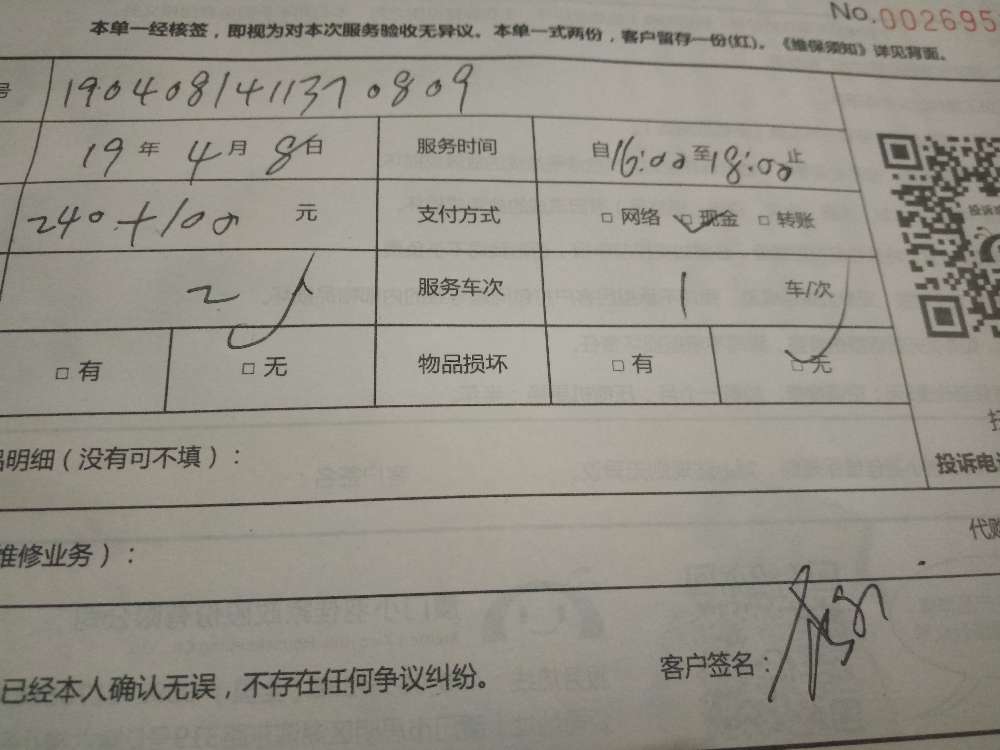 No.002695
本单一经核签，即视为对本次服务验收无异议。本单一式两份，客户留存一份(红)。《维保须知》详见背面。
号 1904081411370809
19 年 4 月 8 日 服务时间 自16:00至18:00止
240+100 元 支付方式 □ 网络 □ 现金 □ 转账
2 服务车次 1 车/次
□ 有 □ 无 物品损坏 □ 有 □ 无
品明细（没有可不填）：
投诉电
维修业务）： 代购
已经本人确认无误，不存在任何争议纠纷。 客户签名：